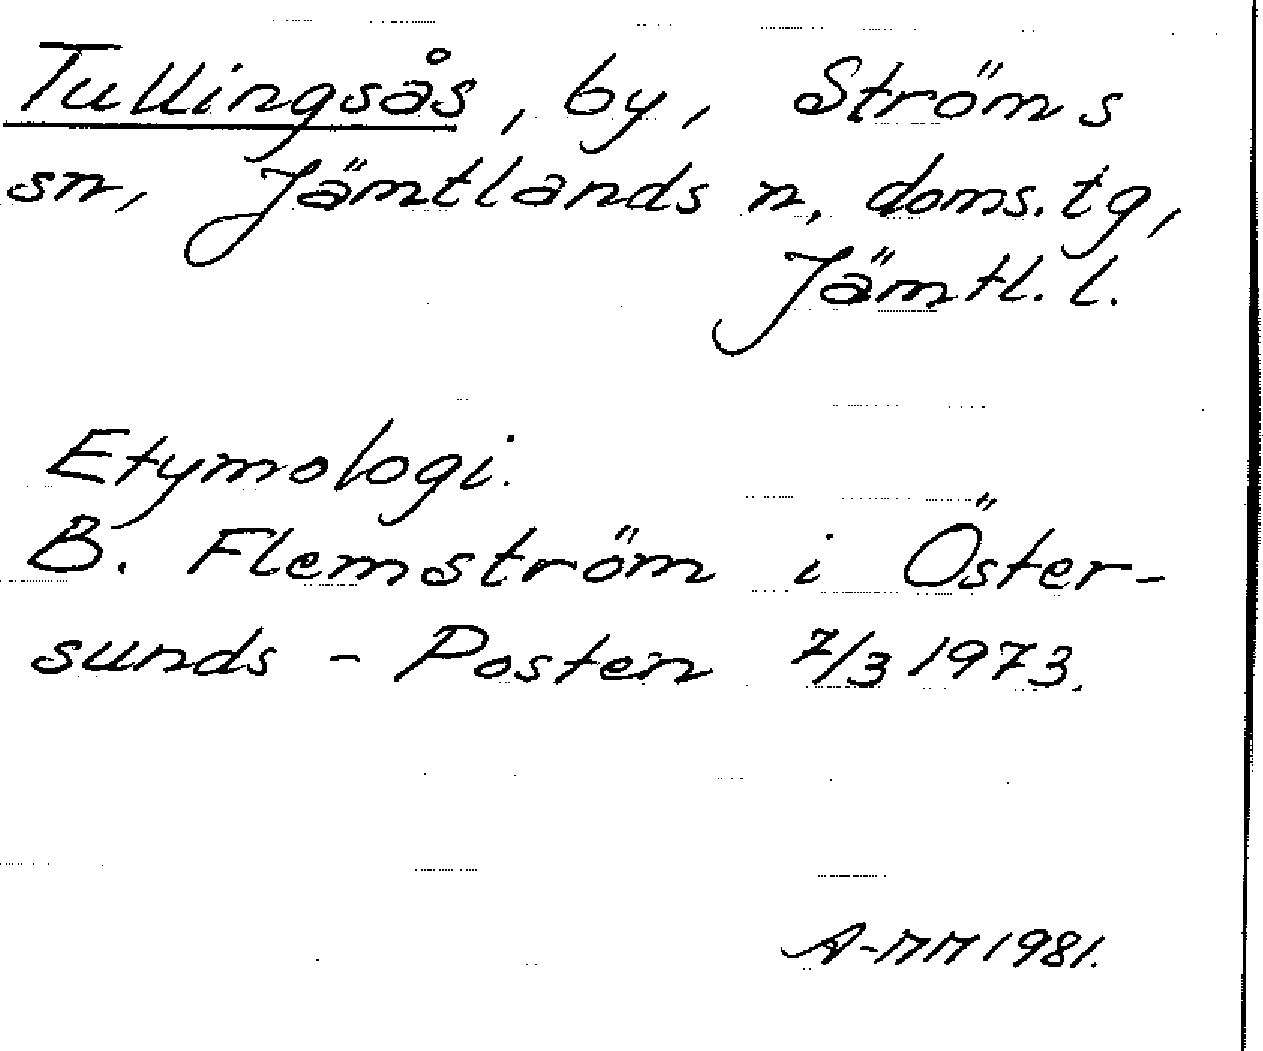 Tullingsås, by, Ströms
sn, Jämtlands n. doms.tg,
Jämtl. l.
Etymologi.
B. Flemström i Öster-
sunds - Posten 7/3 1973.
A-MM 1981.